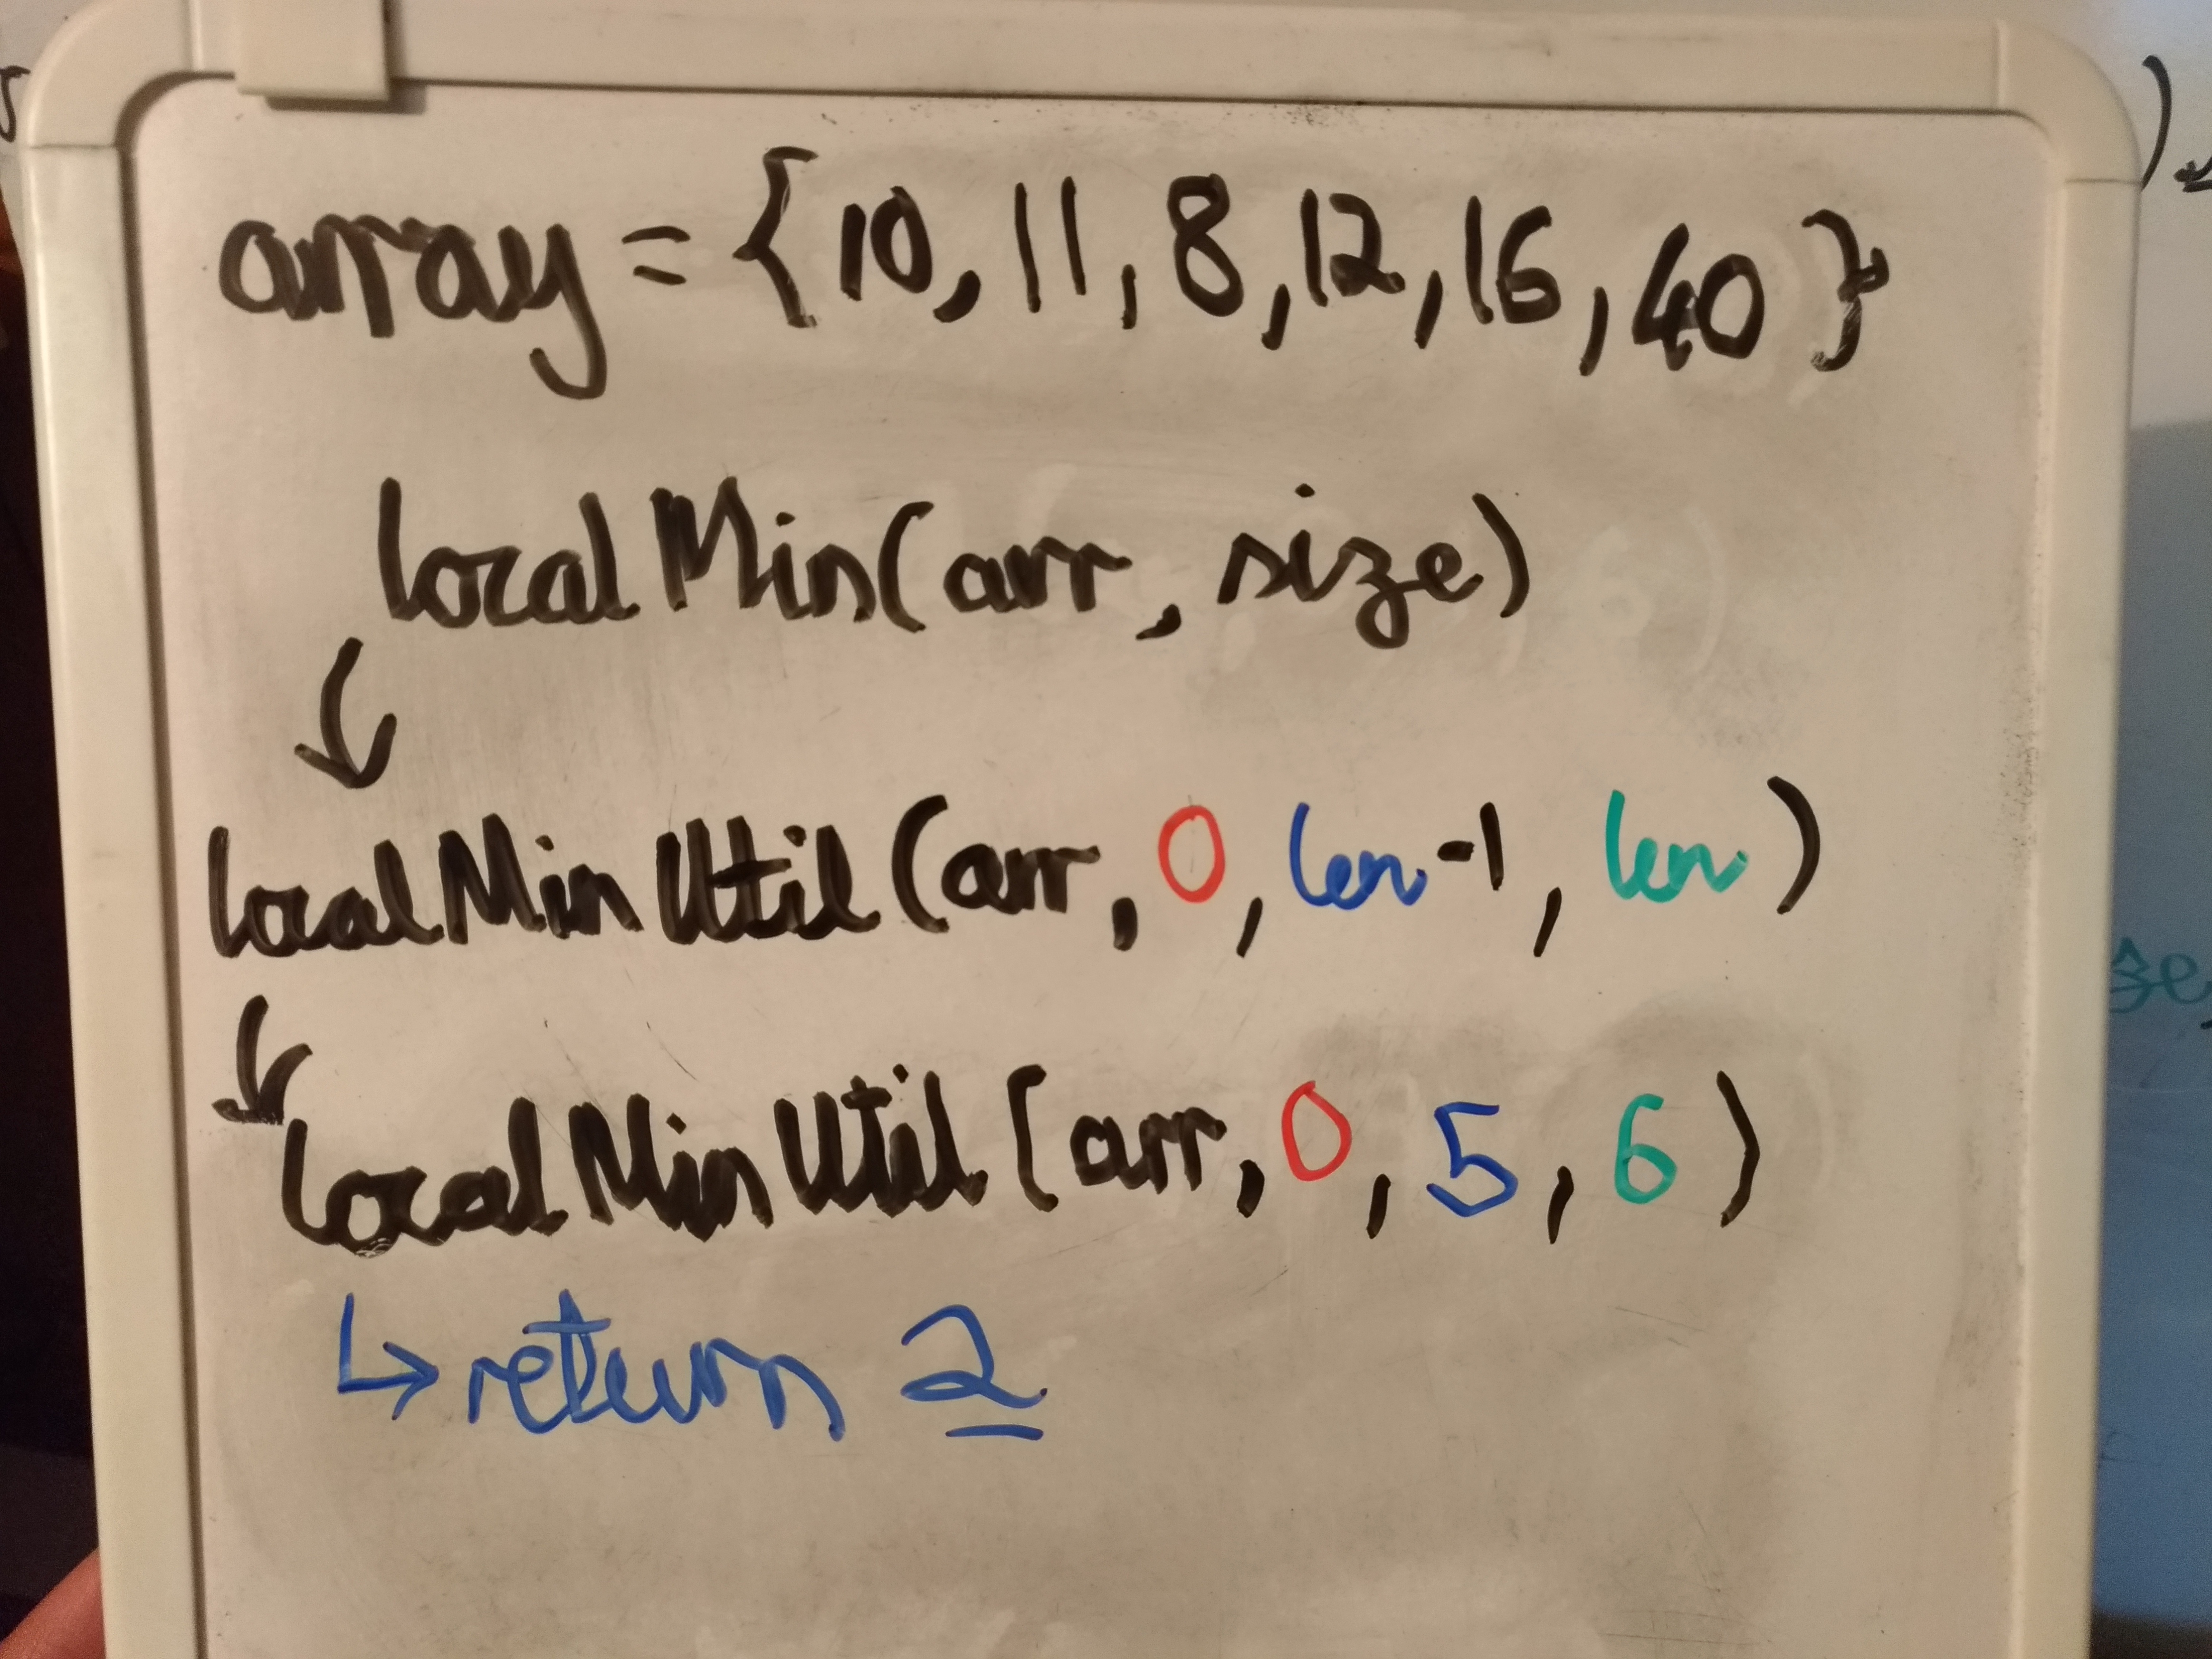 array = {10, 11, 8, 12, 16, 40}
localMin(arr, size)
localMinUtil(arr, 0, len-1, len)
localMinUtil(arr, 0, 5, 6)
↳ return 2